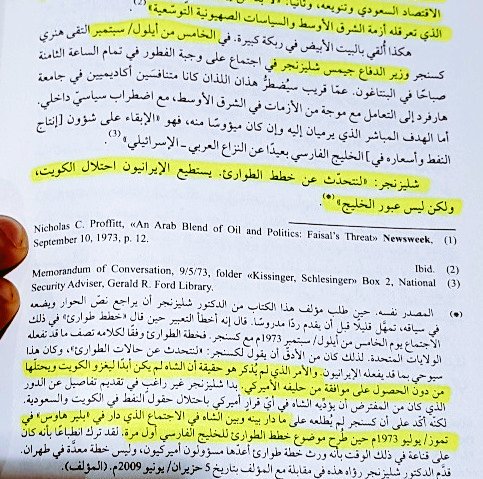 الاقتصاد السعودي وتنويعه، وثانياً:
الذي تعرقله أزمة الشرق الأوسط والسياسات الصهيونية التوسّعية» (2)
هكذا أُلقي بالبيت الأبيض في ربكة كبيرة. في الخامس من أيلول/ سبتمبر التقى هنري
كسنجر وزير الدفاع جيمس شليزنجر في اجتماع على وجبة الفطور في تمام الساعة الثامنة
صباحًا في البنتاغون. عمّا قريب سيُضطرُّ هذان اللذان كانا متنافسَين أكاديميين في جامعة
هارفرد إلى التعامل مع موجة من الأزمات في الشرق الأوسط، مع اضطراب سياسيّ داخلي.
أما الهدف المباشر الذي يرميان إليه وإن كان ميؤوسًا منه، فهو «الإبقاء على شؤون [إنتاج
النفط وأسعاره في] الخليج الفارسي بعيدًا عن النزاع العربي ـ الإسرائيلي» (3).
شليزنجر: «لنتحدّث عن خطط الطوارئ. يستطيع الإيرانيون احتلال الكويت،
ولكن ليس عبور الخليج» (*).
(1) Nicholas C. Proffitt, «An Arab Blend of Oil and Politics: Faisal's Threat» Newsweek,
September 10, 1973, p. 12.
(2) Ibid.
(3) Memorandum of Conversation, 9/5/73, folder «Kissinger, Schlesinger» Box 2, National
Security Adviser, Gerald R. Ford Library.
(*) المصدر نفسه. حين طلب مؤلف هذا الكتاب من الدكتور شليزنجر أن يراجع نصّ الحوار ويضعه
في سياقه، تمهّل قليلًا قبل أن يقدم ردًا مدروسًا. قال إنه أخطأ التعبير حين قال «خطط طوارئ» في ذلك
الاجتماع يوم الخامس من أيلول/ سبتمبر 1973م مع كسنجر. فخطة الطوارئ وفقًا لكلامه تصف ما قد تفعله
الولايات المتحدة. لذلك كان من الأدقّ أن يقول لكسنجر: «لنتحدث عن حالات الطوارئ»، وكان هذا
سيوحي بما قد يفعله الإيرانيون. والأمر الذي لم يُذكر هو حقيقة أن الشاه لم يكن أبدًا ليغزو الكويت ويحتلّها
من دون الحصول على موافقة من حليفه الأميركي. بدا شليزنجر غير راغب في تقديم تفاصيل عن الدور
الذي كان من المفترض أن يؤدّيه الشاه في أيّ قرار أميركي باحتلال حقول النفط في الكويت والسعودية.
لكنّه أكّد على أن كسنجر لم يُطلعه على ما دار بينه وبين الشاه في الاجتماع الذي دار في «بلير هاوس» في
تموز/ يوليو 1973م حين طُرح موضوع خطط الطوارئ للخليج الفارسي أول مرة. لقد ترك انطباعًا بأنه كان
على قناعة في ذلك الوقت بأنه ورث خطة طوارئ أعدّها مسؤولون أميركيون، وليس خطة معدّة في طهران.
قدّم الدكتور شليزنجر رؤاه هذه في مقابلة مع المؤلف بتاريخ 5 حزيران/ يونيو 2009م. (المؤلف)